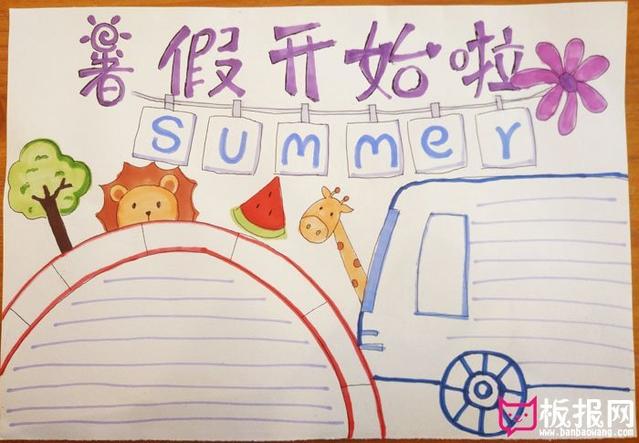 暑假开始啦
summer
板报网
www.banbaowang.com